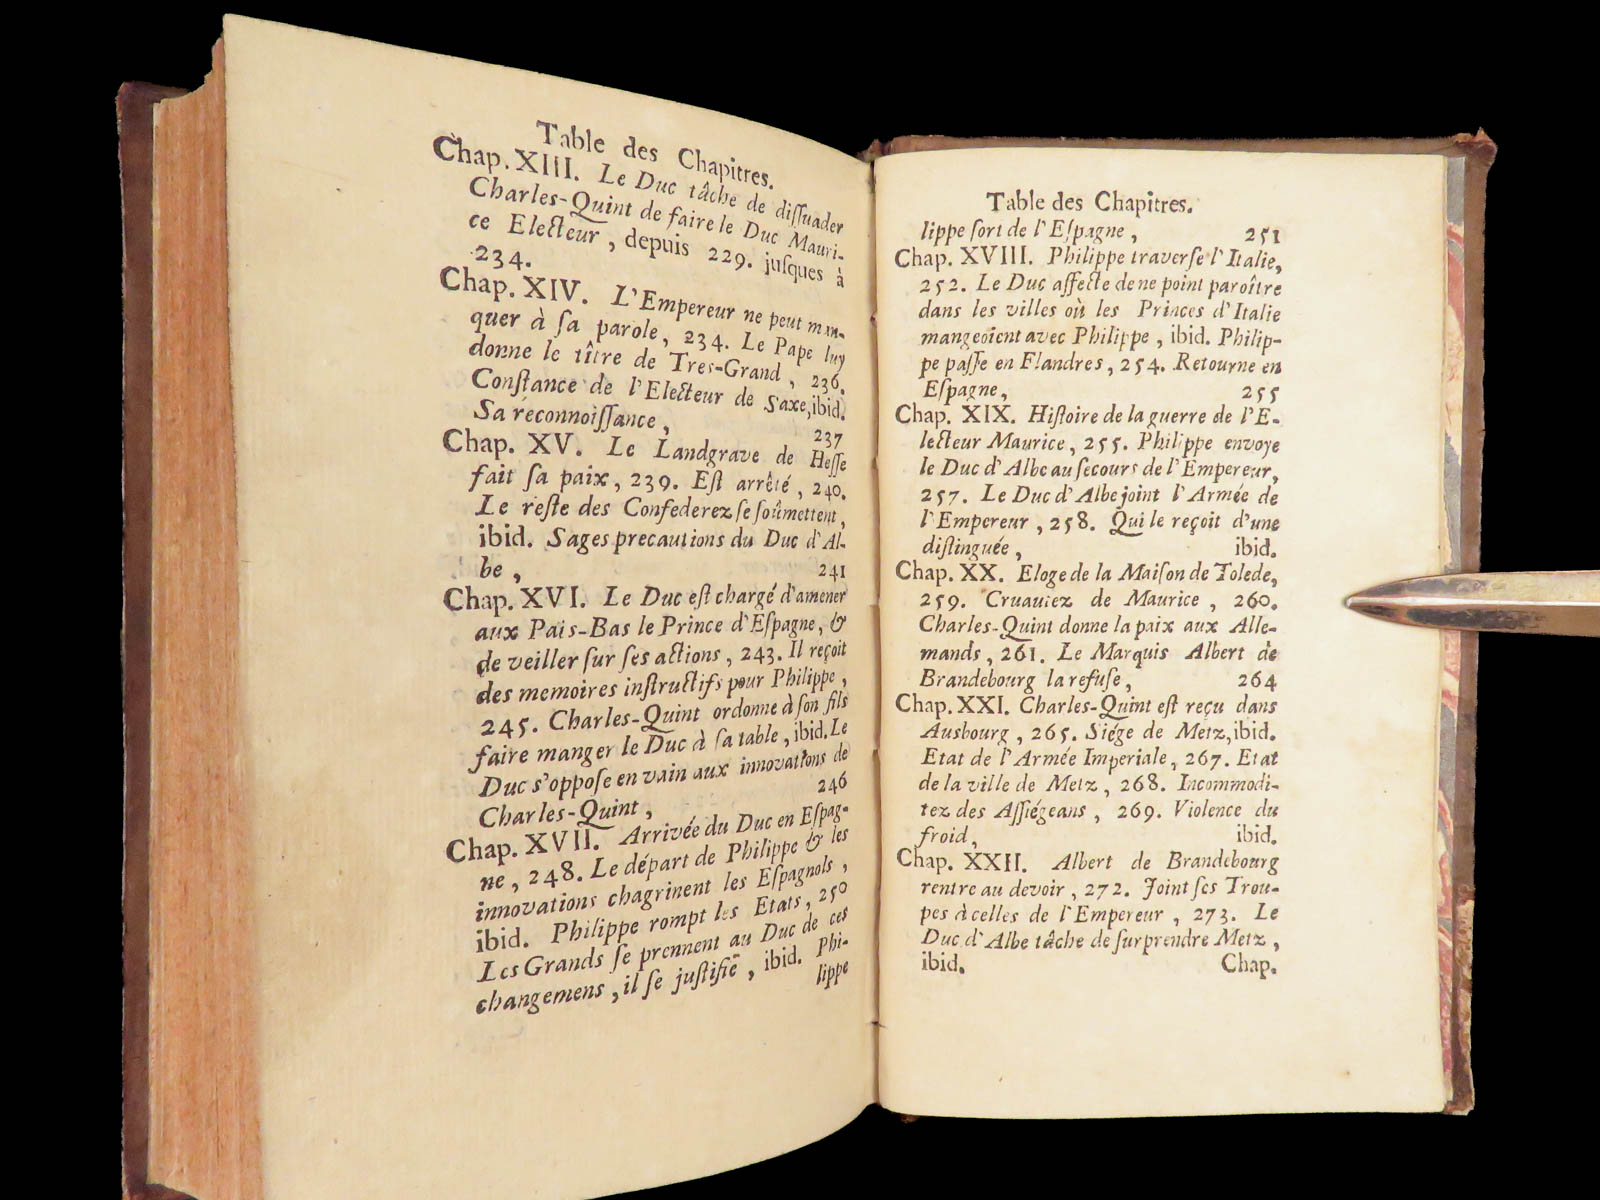 Table des Chapitres.
Chap. XIII. Le Duc tâche de diſſuader
Charles-Quint de faire le Duc Mauri-
ce Electeur, depuis 229. juſques à
234.
Chap. XIV. L'Empereur ne peut man-
quer à ſa parole, 234. Le Pape luy
donne le tître de Tres-Grand, 236.
Conſtance de l'Electeur de Saxe, ibid.
Sa réconnoiſſance, 237
Chap. XV. Le Landgrave de Heſſe
fait ſa paix, 239. Eſt arrêté, 240.
Le reſte des Confederez ſe ſoûmettent,
ibid. Sages precautions du Duc d'Al-
be, 241
Chap. XVI. Le Duc eſt chargé d'amener
aux Païs-Bas le Prince d'Eſpagne, &
de veiller ſur ſes actions, 243. Il reçoit
des memoires inſtructifs pour Philippe,
245. Charles-Quint ordonne à ſon fils
faire manger le Duc à ſa table, ibid. Le
Duc s'oppoſe en vain aux innovations de
Charles-Quint, 246
Chap. XVII. Arrivée du Duc en Eſpag-
ne, 248. Le départ de Philippe & les
innovations chagrinent les Eſpagnols,
ibid. Philippe rompt les Etats, 250
Les Grands ſe prennent au Duc de ces
changemens, il ſe juſtifie, ibid. Phi-
lippe
Table des Chapitres.
lippe ſort de l'Eſpagne, 251
Chap. XVIII. Philippe traverſe l'Italie,
252. Le Duc affecte de ne point paroître
dans les villes où les Princes d'Italie
mangeoient avec Philippe, ibid. Philip-
pe paſſe en Flandres, 254. Retourne en
Eſpagne, 255
Chap. XIX. Hiſtoire de la guerre de l'E-
lecteur Maurice, 255. Philippe envoye
le Duc d'Albe au ſecours de l'Empereur,
257. Le Duc d'Albe joint l'Armée de
l'Empereur, 258. Qui le reçoit d'une
diſtinguée, ibid.
Chap. XX. Eloge de la Maiſon de Tolede,
259. Cruautez de Maurice, 260.
Charles-Quint donne la paix aux Alle-
mands, 261. Le Marquis Albert de
Brandebourg la refuſe, 264
Chap. XXI. Charles-Quint eſt reçu dans
Ausbourg, 265. Siége de Metz, ibid.
Etat de l'Armée Imperiale, 267. Etat
de la ville de Metz, 268. Incommodi-
tez des Aſſiégeans, 269. Violence du
froid, ibid.
Chap. XXII. Albert de Brandebourg
rentre au devoir, 272. Joint ſes Trou-
pes à celles de l'Empereur, 273. Le
Duc d'Albe tâche de ſurprendre Metz,
ibid. Chap.